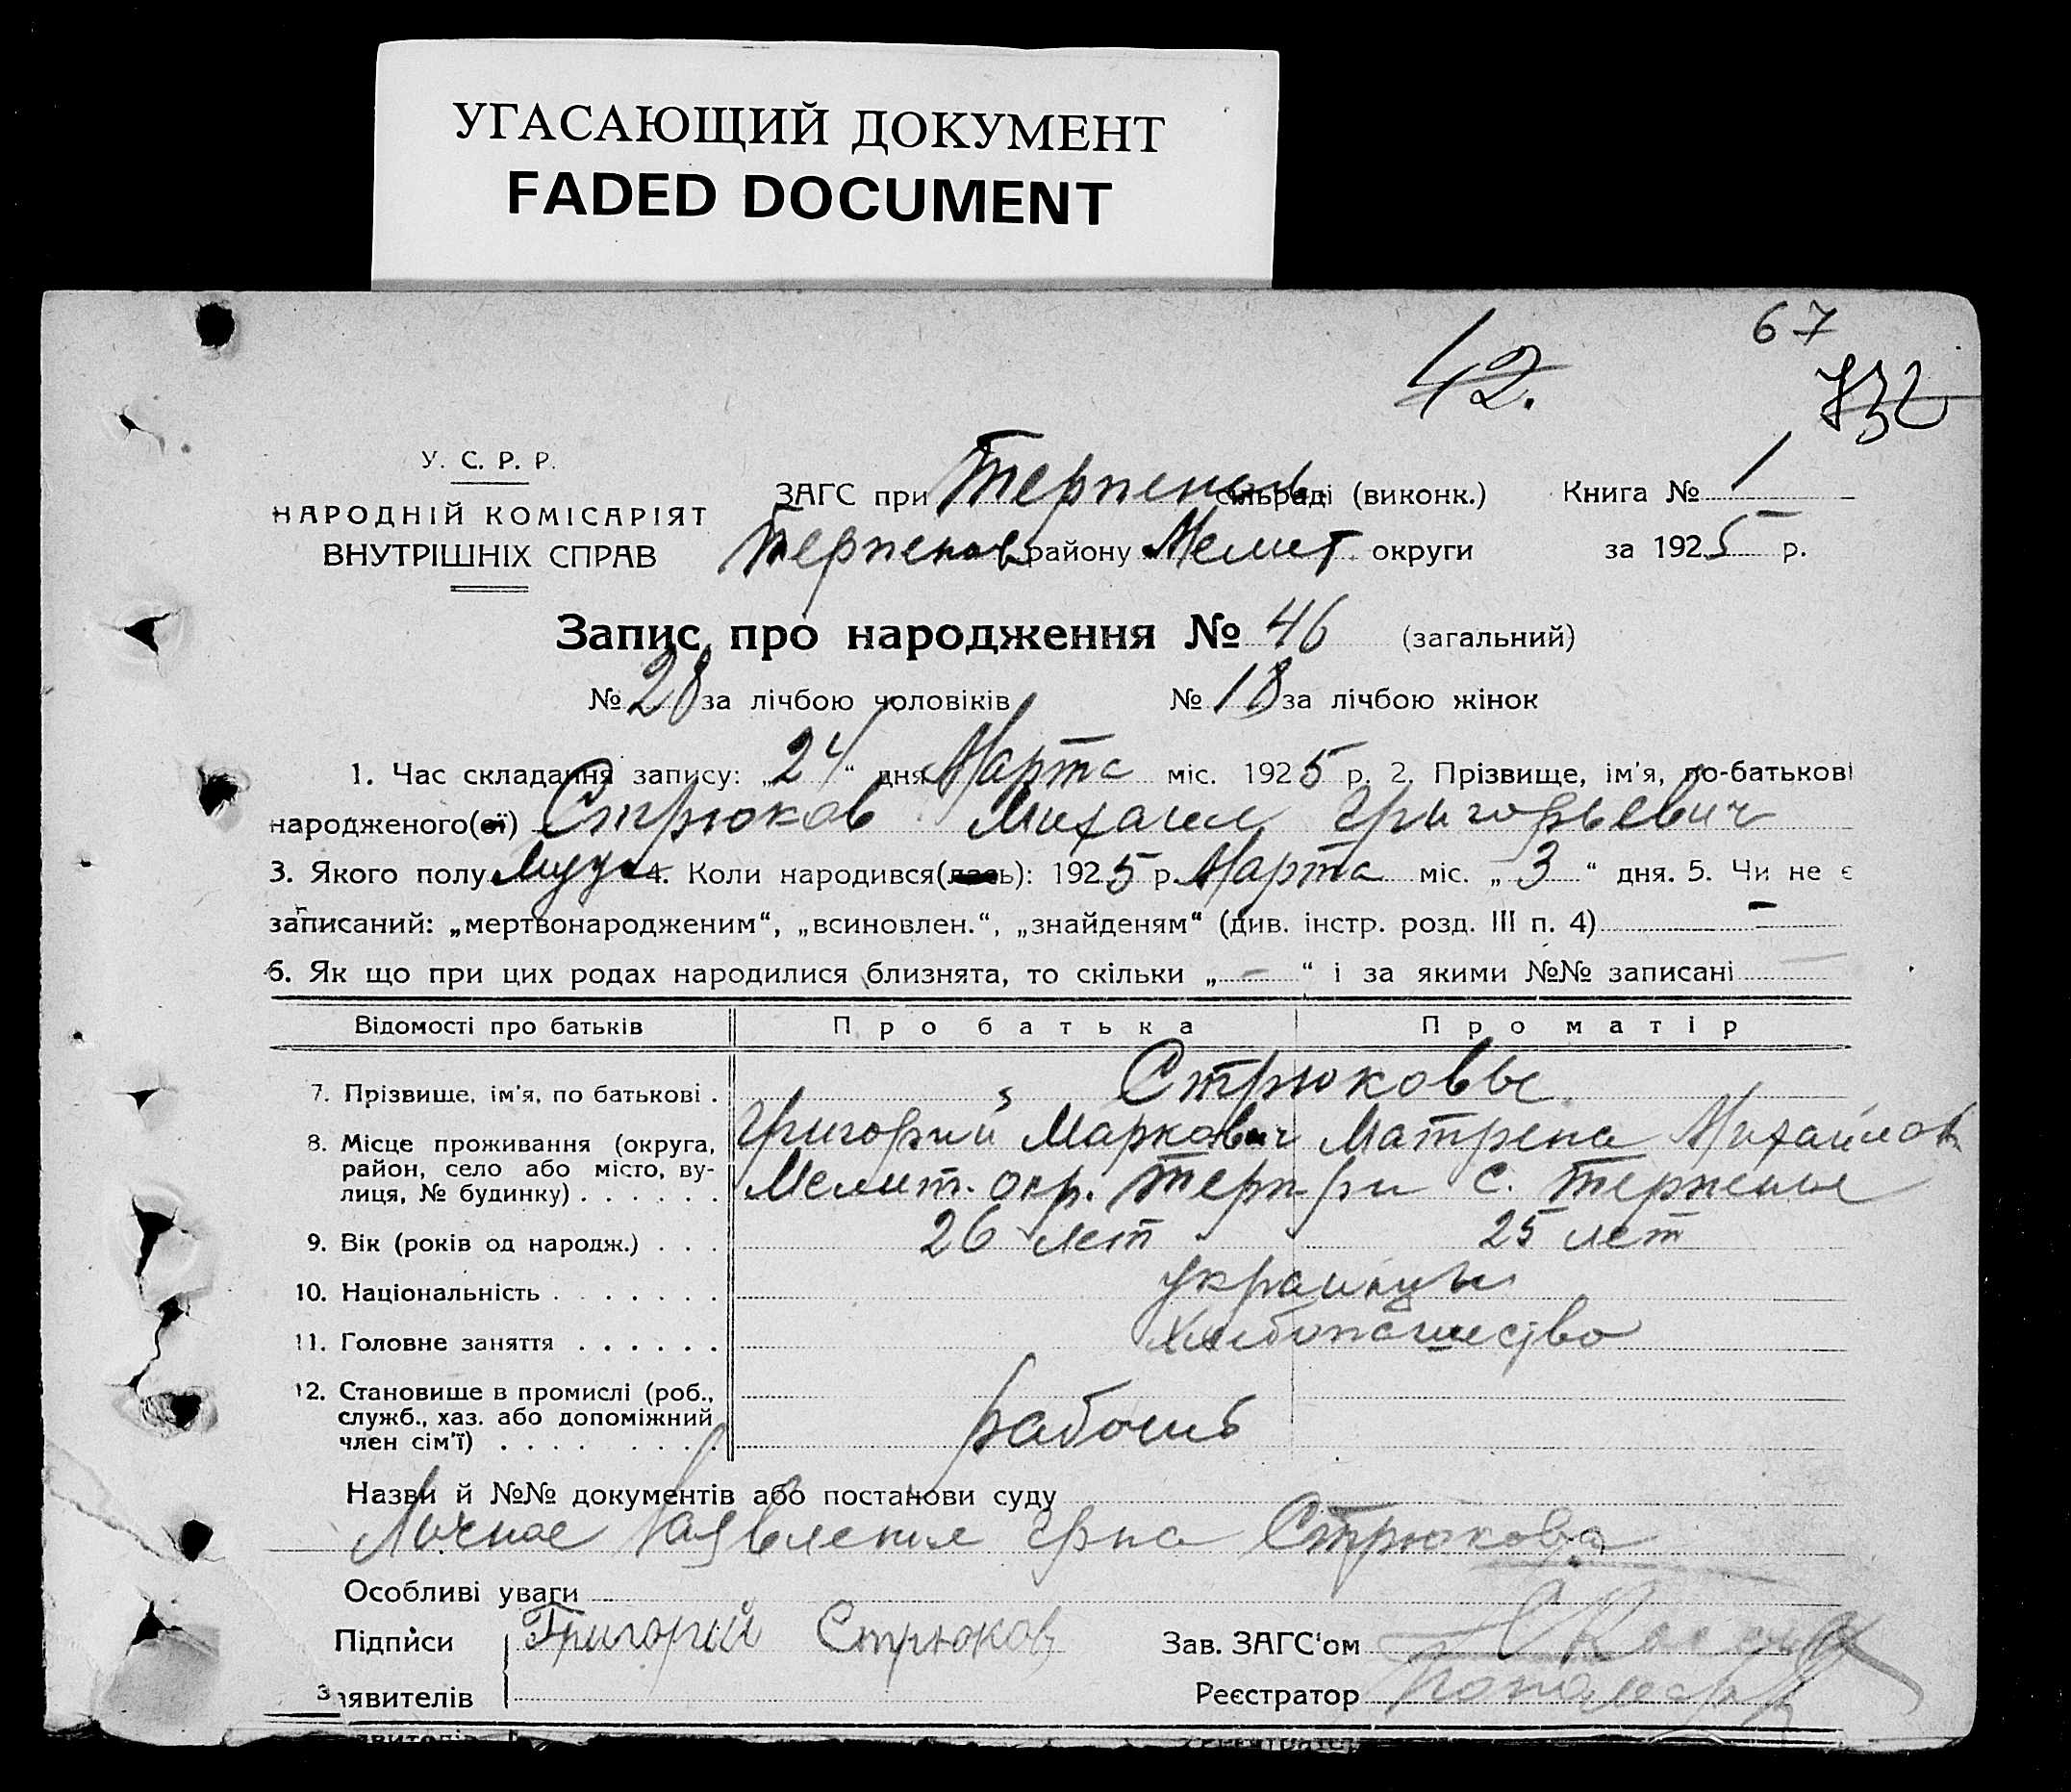 УГАСАЮЩИЙ ДОКУМЕНТ
FADED DOCUMENT
67
42.
732
У. С. Р. Р.
НАРОДНІЙ КОМІСАРІЯТ
ВНУТРІШНІХ СПРАВ
ЗАГС при Терпеньев. сільраді (виконк.) Книга № 1
Терпеньев району Мелит округи за 1925 р.
Запис про народження № 46 (загальний)
№ 28 за лічбою чоловіків № 18 за лічбою жінок
1. Час складання запису: „24“ дня Марта міс. 1925 р. 2. Прізвище, ім'я, по-батькові
народженого(ої) Стрюков Михаил Григорьевич
3. Якого полу Муж 4. Коли народився(лась): 1925 р. Марта міс. „3“ дня. 5. Чи не є
записаний: „мертвонародженим“, „всиновлен.“, „знайденям“ (див. інстр. розд. III п. 4) —
6. Як що при цих родах народилися близнята, то скільки „—“ і за якими №№ записані —
Відомості про батьків Про батька Про матір
7. Прізвище, ім'я, по батькові . Стрюковы
Григорий Маркович Матрена Михайлов
8. Місце проживання (округа,
район, село або місто, ву-
лиця, № будинку) . . . . . . Мелит. окр. Терп р-н с. Терпенье
9. Вік (років од народж.) . . . 26 лет 25 лет
10. Національність . . . . . . . украинцы
11. Головне заняття . . . . . . Хлебопашество
12. Становище в промислі (роб.,
служб., хаз. або допоміжний
член сім'ї) . . . . . . . . рабочий
Назви й №№ документів або постанови суду
Личное заявление гр-на Стрюкова
Особливі уваги
Підписи Григорий Стрюков Зав. ЗАГС'ом
заявителів Реєстратор